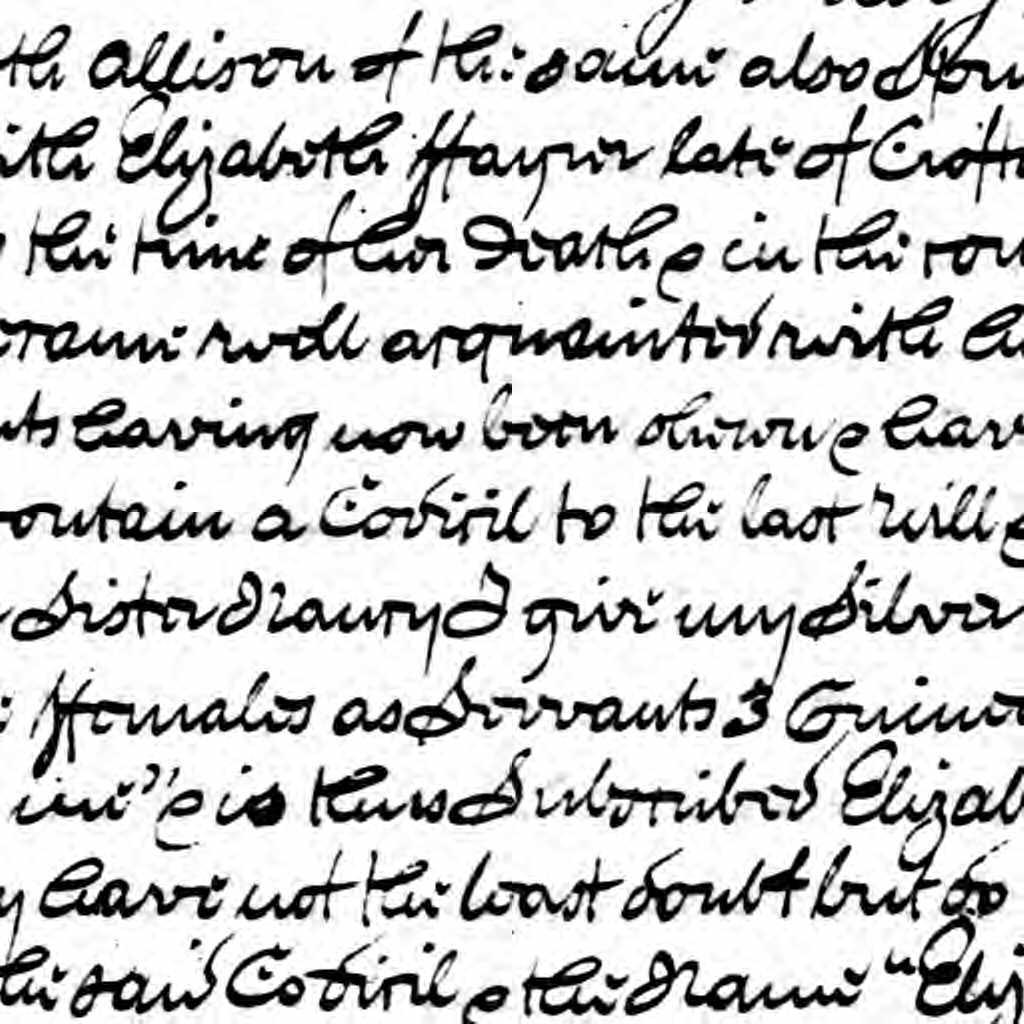 th Allison of the same also Spin
ith Elizabeth ffayrer late of Crofto
the time of her Death & in the cou
came well acquainted with h
nts having now been shewn & hav
contain a Codicil to the last Will &
Sister Nancy I give my Silver
e ffemales as Servants 3 Guinea
ine" & is thus Subscribed Elizab
y have not the least doubt but do
the said Codicil & the Name "Eliz